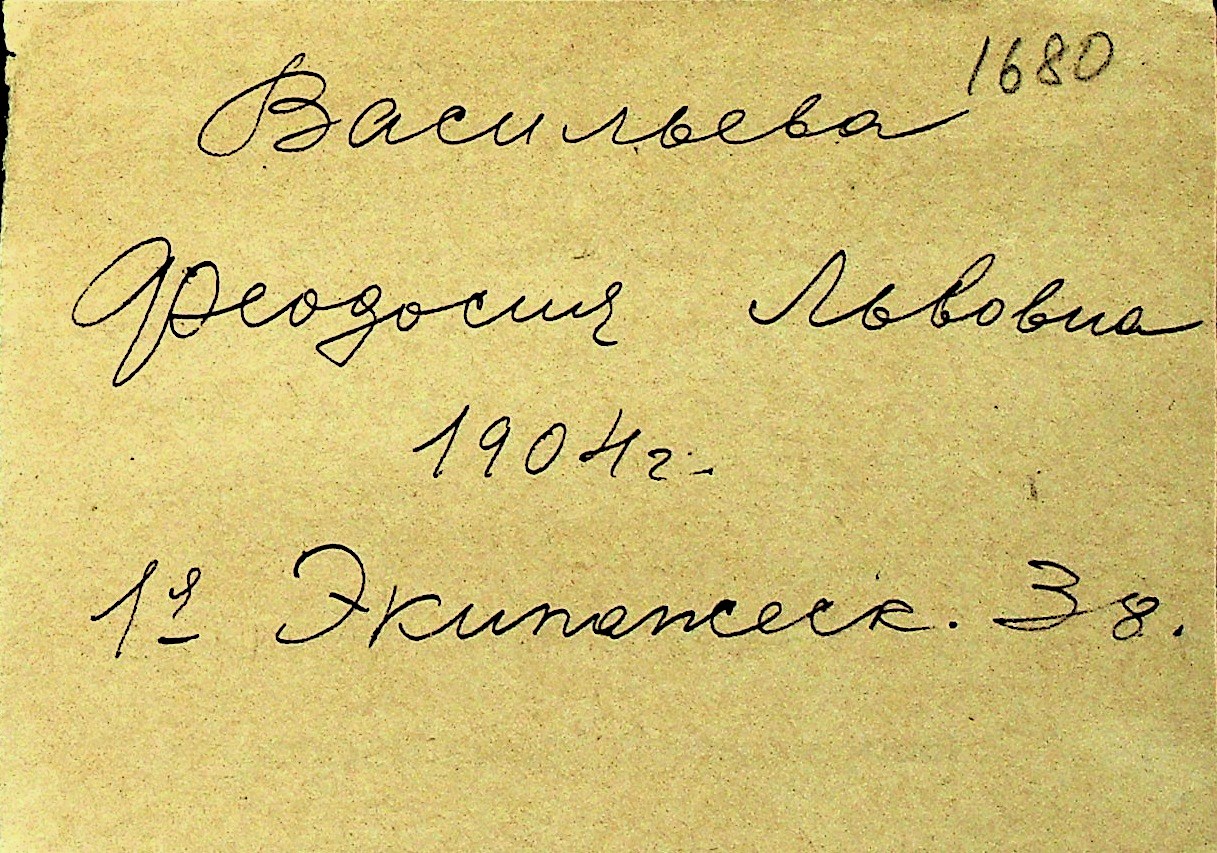 1680
Васильева
Феодосия Львовна
1904г.
1я Экипажеск. 38.